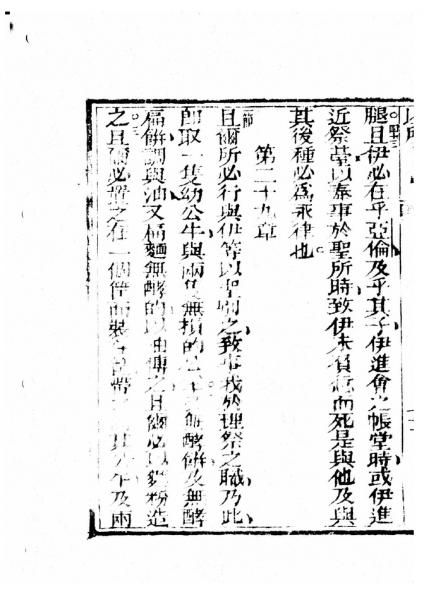 腿且伊必在乎亞倫及乎其子伊進會之帳堂時或伊進
近祭臺以奉事於聖所時致伊未負愆而死是與他及與
其後種必為永律也
第二十九章
節
且爾所必行與伊等以聖別之致事我於理祭之職乃此
即取一隻幼公牛與兩隻無損的公羊 無酵餅及無酵
餅調與油又 麵無酵的以油傅之且爾必以 粉造
之且爾必置之在一個 而裝 帶 其 牛及兩